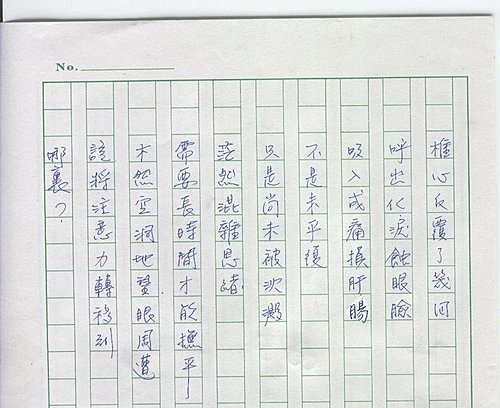 No.
椎心反覆了幾回
呼出化淚蝕眼臉
吸入成痛損肝腸
不是未平復
只是尚未被沈澱
茫然混雜思緒
需要長時間才能撫平
木然空洞地望眼周遭
該將注意力轉移到
哪裏？